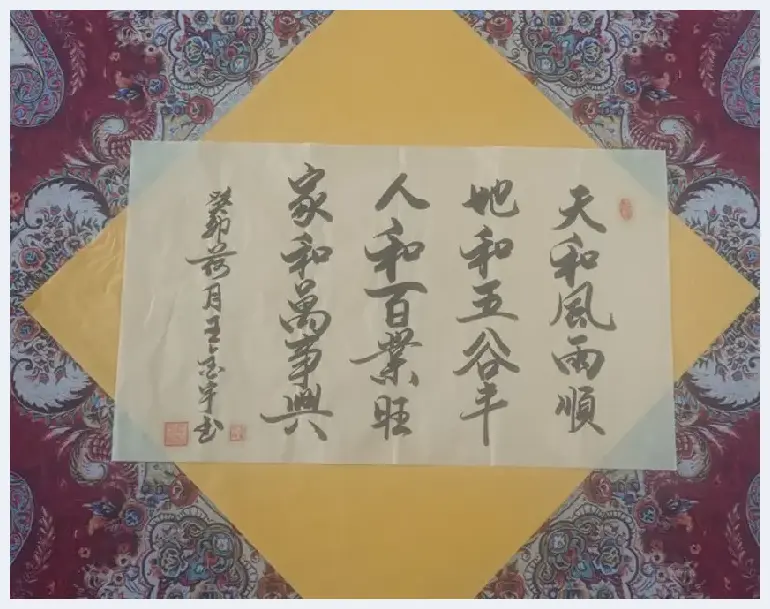 天和風雨順
地和五谷丰
人和百業旺
家和萬事興
癸卯荷月王金宇书